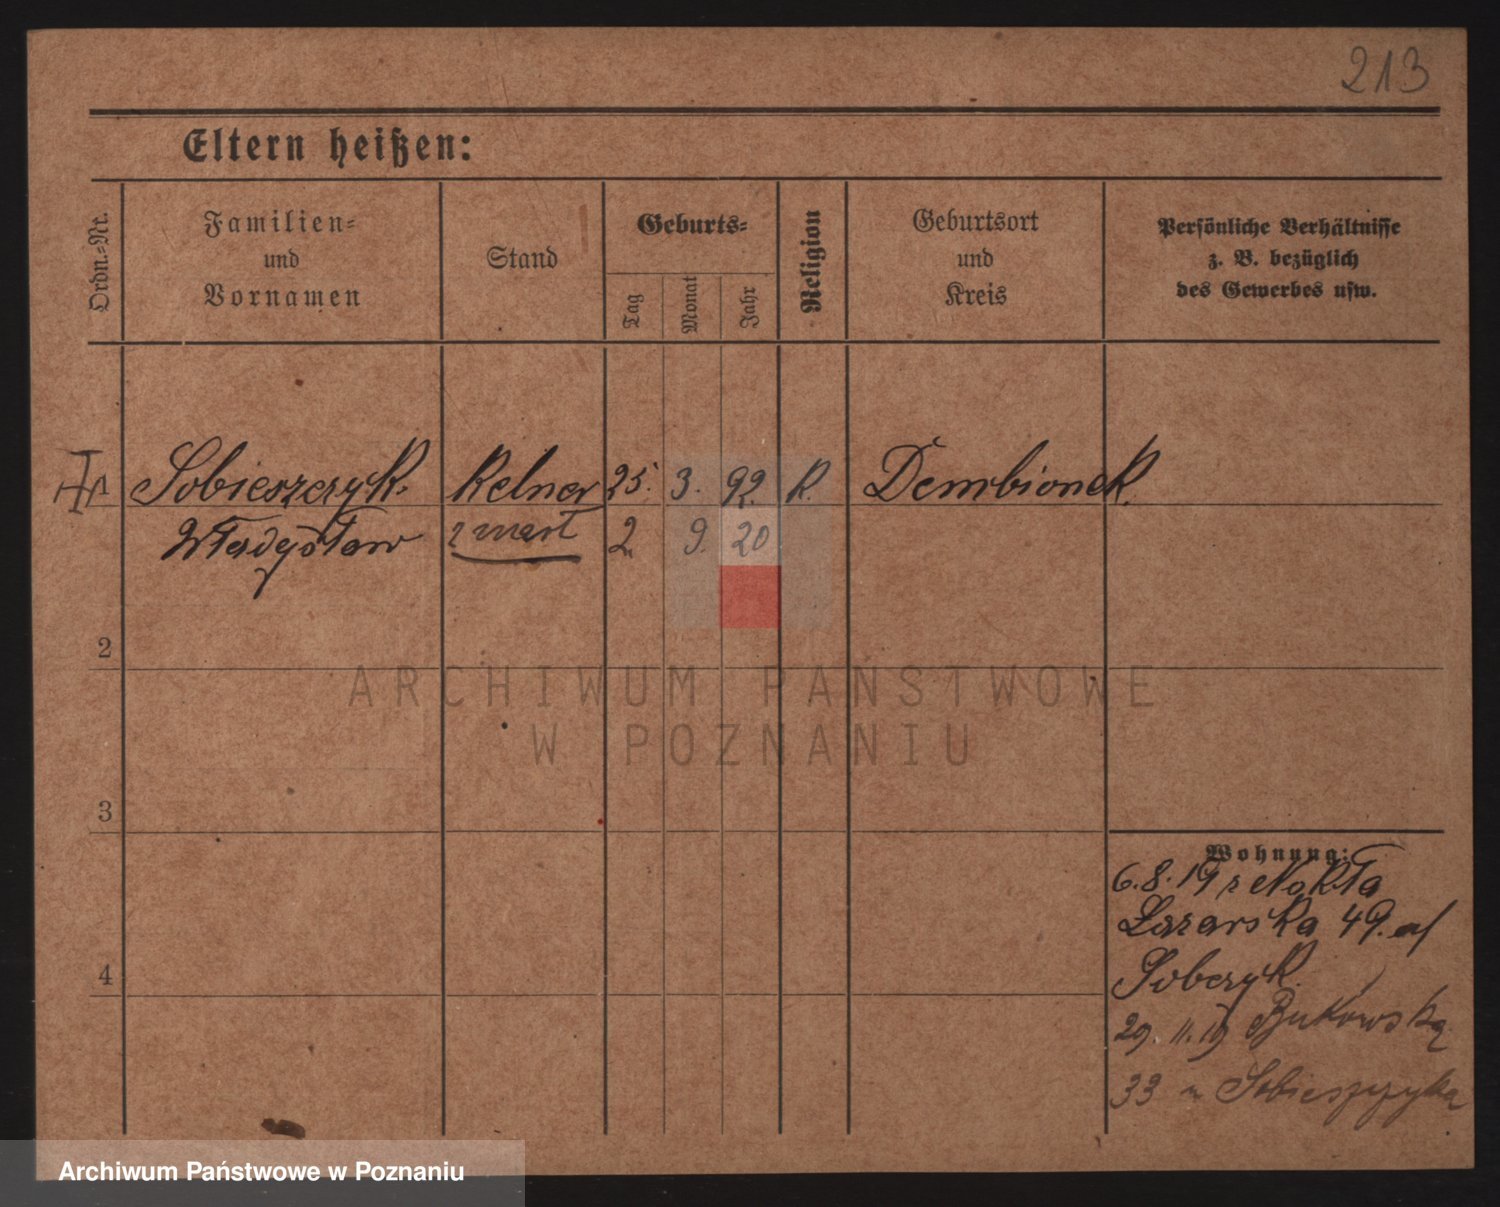 213
Eltern heißen:
Ordn.-Nr.
Familien-
und
Vornamen
Stand
Geburts-
Tag
Monat
Jahr
Religion
Geburtsort
und
Kreis
Persönliche Verhältnisse
z. B. bezüglich
des Gewerbes usw.
1 Sobieszczyk. Kelner 25. 3. 92. K. Dembionek.
Władysław zmarł 2 9. 20
2
3
4
Wohnung:
6.8.19 z Nakła
Łazarska 49.
Sobczyk.
29. 11. 19 Bukowska
33 u Sobieszczyka
ARCHIWUM PAŃSTWOWE
W POZNANIU
Archiwum Państwowe w Poznaniu